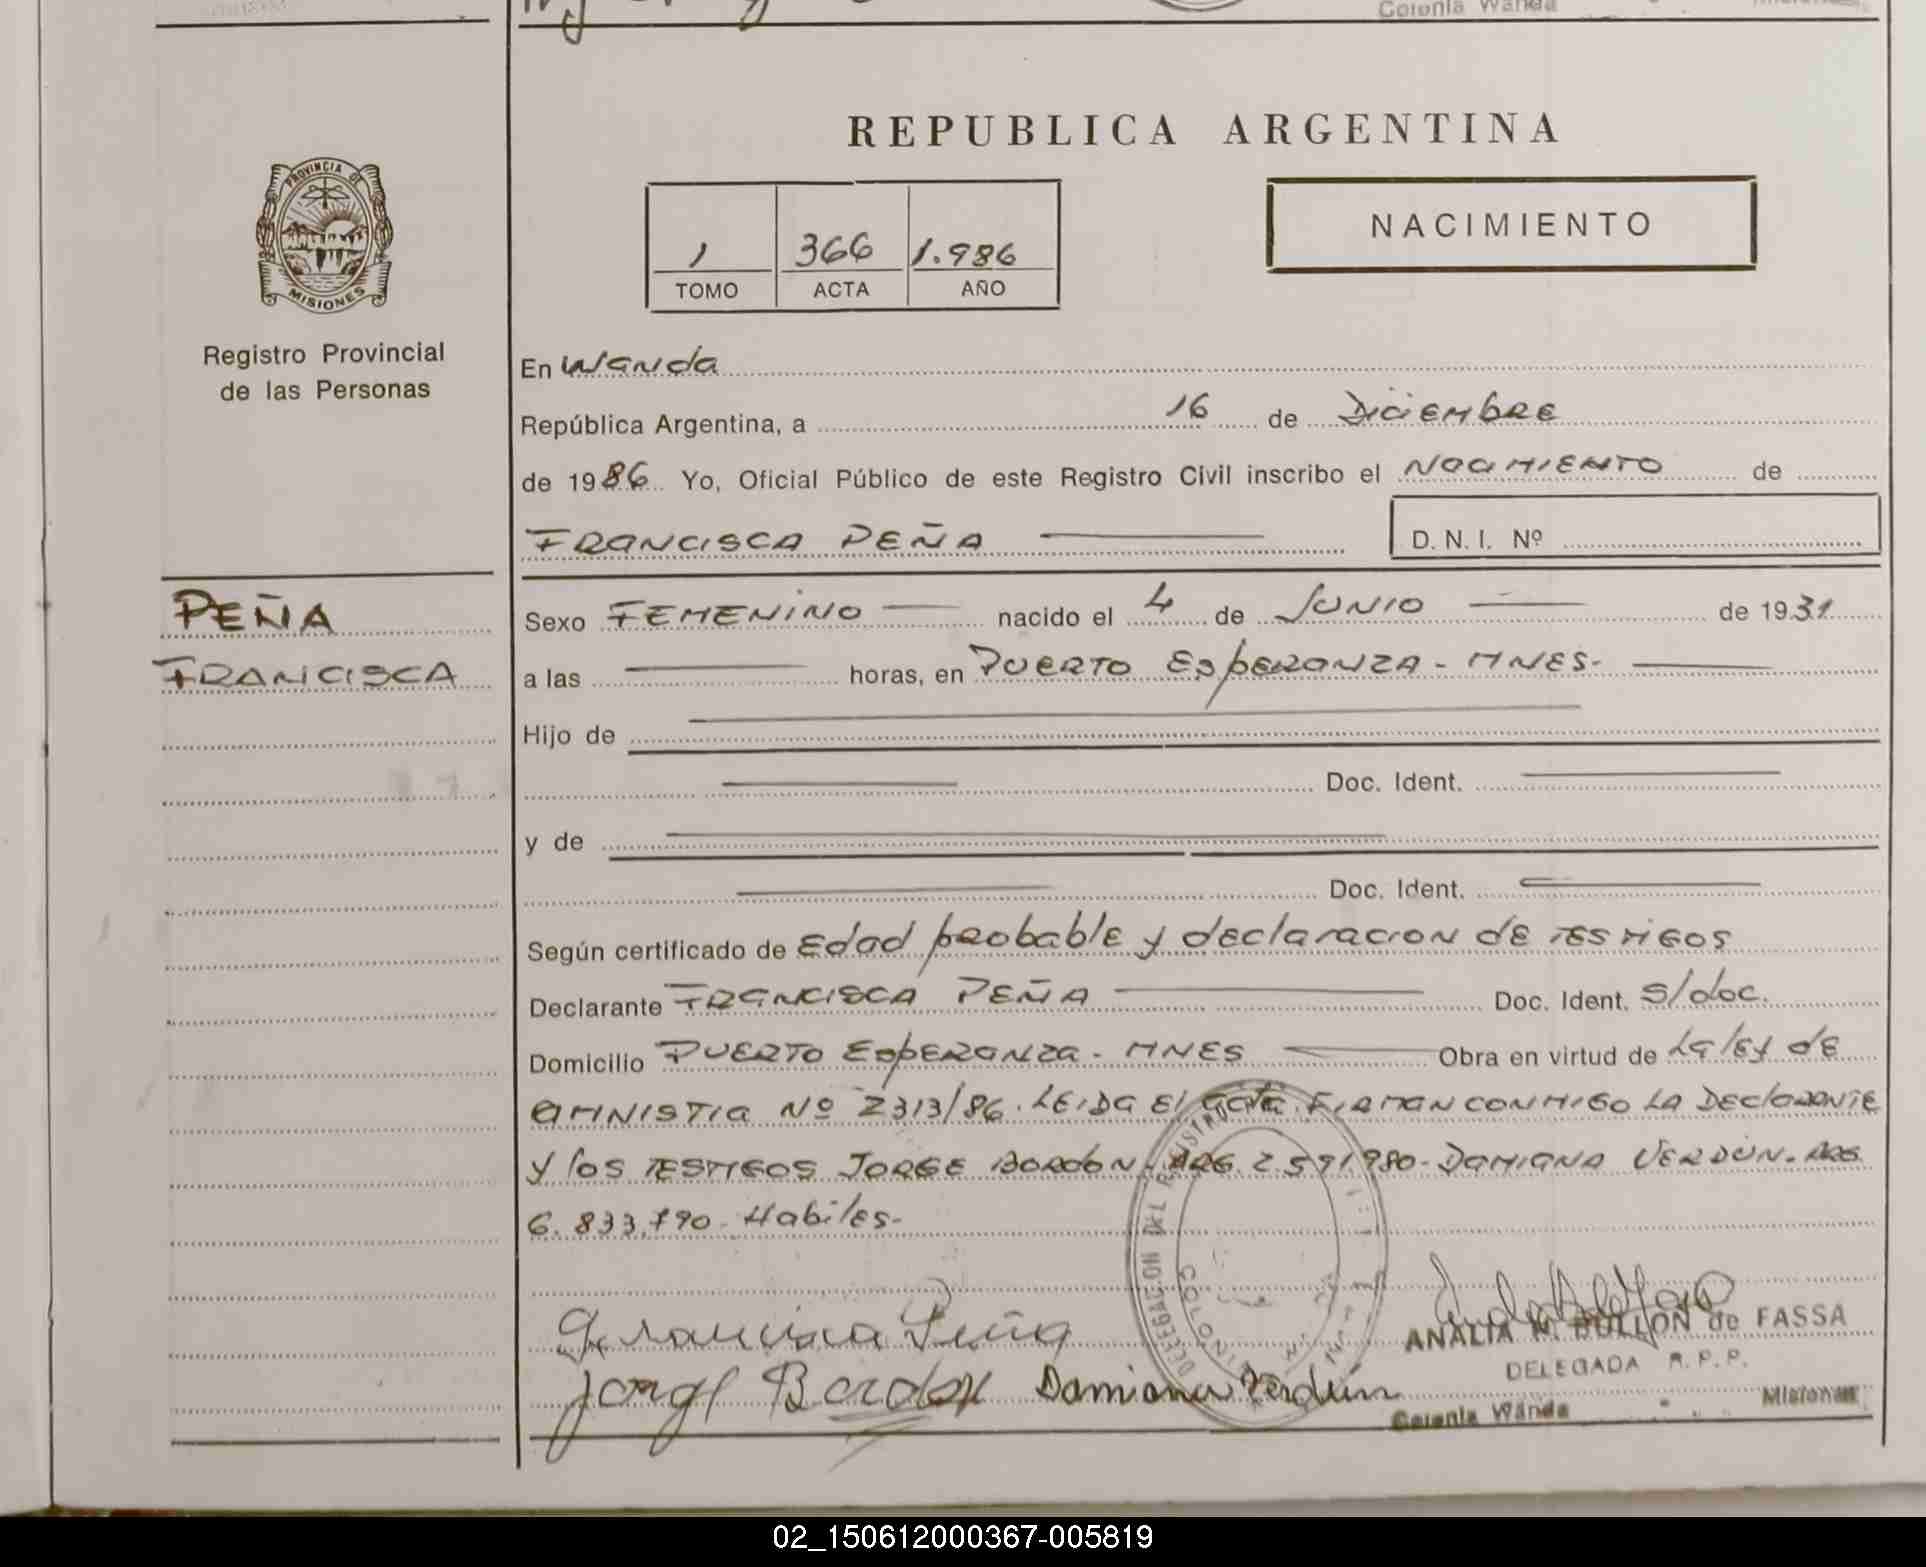 Colonia Wanda
REPUBLICA ARGENTINA
PROVINCIA DE
MISIONES
Registro Provincial
de las Personas
1 366 1.986
TOMO ACTA AÑO
NACIMIENTO
En Wanda
República Argentina, a 16 de Diciembre
de 1986 Yo, Oficial Público de este Registro Civil inscribo el Nacimiento de
FRANCISCA PEÑA D. N. I. Nº
PEÑA
FRANCISCA
Sexo FEMENINO nacido el 4 de JUNIO de 1931
a las horas, en PUERTO ESPERANZA - MNES-
Hijo de
Doc. Ident.
y de
Doc. Ident.
Según certificado de Edad probable y declaracion de testigos
Declarante FRANCISCA PEÑA Doc. Ident. s/doc.
Domicilio PUERTO ESPERANZA - MNES Obra en virtud de La ley de
AMNISTIA Nº 2313/86. LEIDA El acta FIRMAN CONMIGO LA DEClARANTE
y los TESTIGOS JORGE BORDÓN - ARG. 2.591.980 - DAMIANA VERDÚN. ARG.
6.833.790 - Habiles-
Francisca Peña
Jorge Bordon Damiana Verdun
ANALIA M. BULLON de FASSA
DELEGADA R.P.P.
Colonia Wanda Misiones
02_150612000367-005819